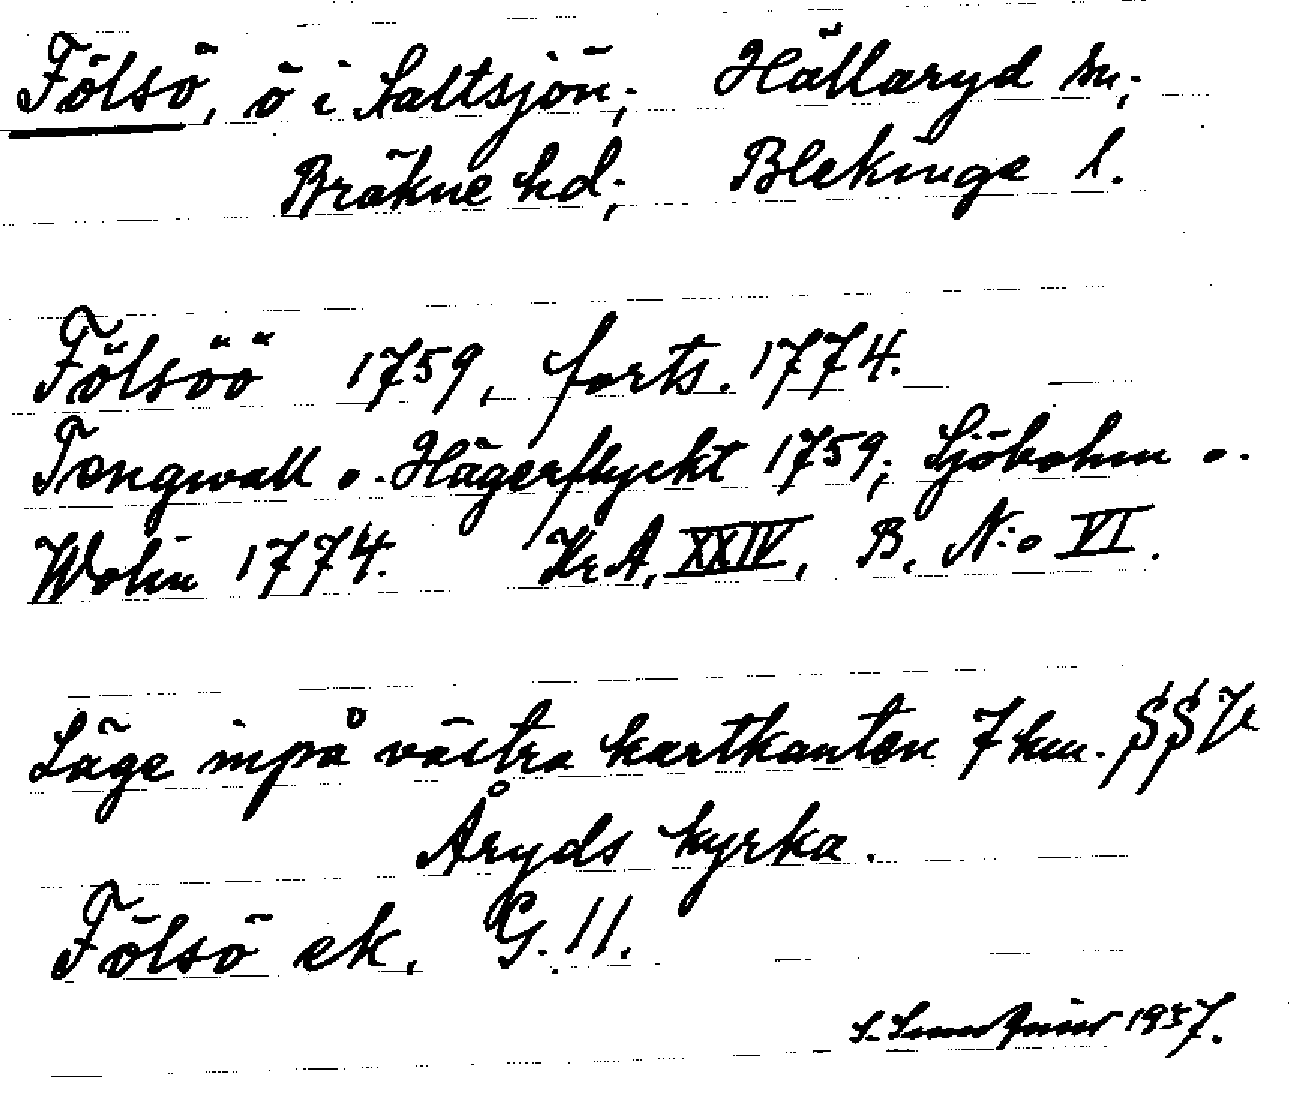 Fölsö, ö i Saltsjön; Hällaryd sn;
Bräkne hd; Blekinge l.
Fölsöö 1759, forts. 1774.
Tengwall o. Hägerflyckt 1759; Sjöbohm o.
Wolin 1774. Kr A, XXIV, B, N:o VI.
Läge inpå västra kartkanten 7 km. SSV
Åryds kyrka.
Fölsö ek. G. 11.
S. 1937.